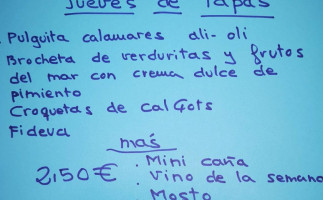 Jueves de Tapas
. Pulguita calamares ali-oli
Brocheta de verduritas y frutos
del mar con crema dulce de
pimiento
Croquetas de calÇots
Fideva
más
2,50€ . Mini caña
. Vino de la semana
. Mosto